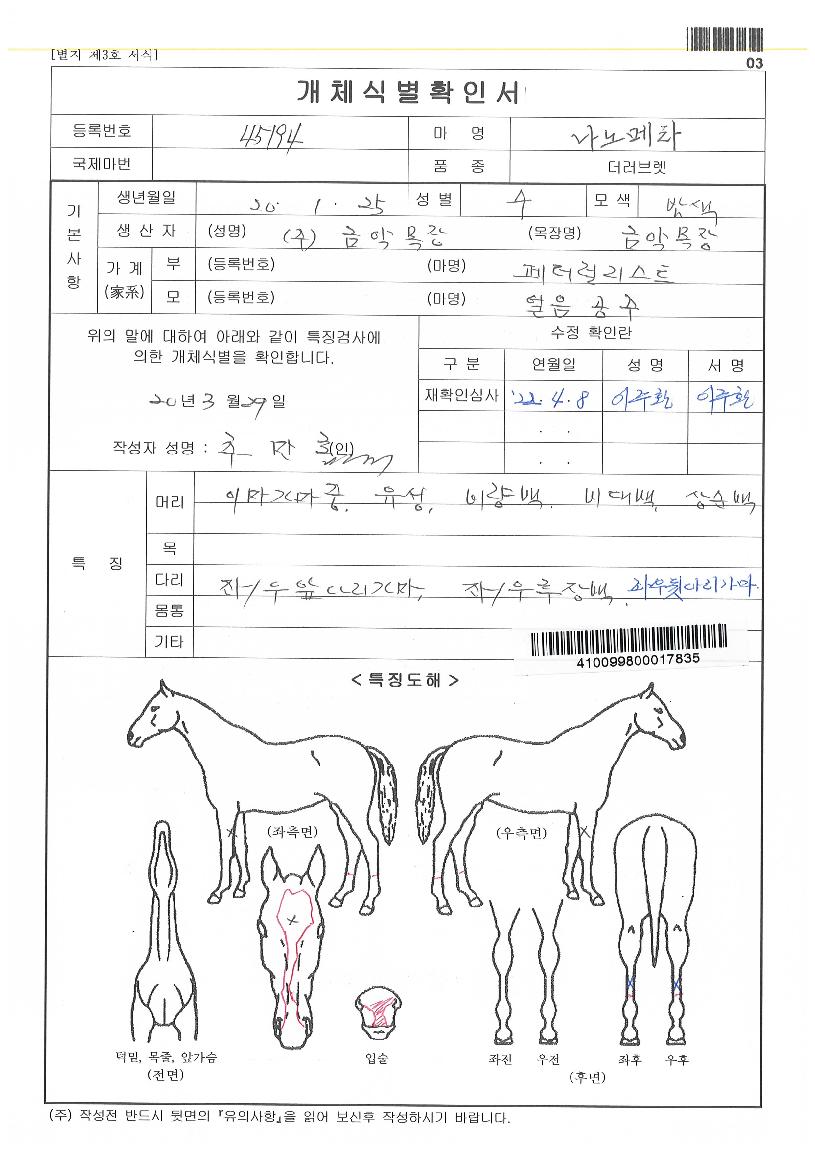 [별지 제3호 서식]
03
개체식별확인서
등록번호 45194 마 명 나노메타
국제마번 품 종 더러브렛
기본사항
생년월일 20. 1. 25 성별 수 모색 밤색
생산자 (성명) (주) 금악목장 (목장명) 금악목장
가계(家系) 부 (등록번호) (마명) 페더럴리스트
모 (등록번호) (마명) 얼음공주
위의 말에 대하여 아래와 같이 특징검사에
의한 개체식별을 확인합니다.
20년 3월 29일
작성자 성명 : (인)
수정 확인란
구분 연월일 성명 서명
재확인심사 '22. 4. 8 이주환 이주환
. .
. .
특 징
머리 이마가마중, 유성, 비량백, 비대백, 상순백
목
다리 좌/우앞다리가마, 좌/우후장백, 좌우뒷다리가마.
몸통
기타
410099800017835
< 특징도해 >
(좌측면) (우측면)
턱밑, 목줄, 앞가슴
(전면)
입술
좌진 우전 좌후 우후
(후면)
(주) 작성전 반드시 뒷면의 『유의사항』을 읽어 보신후 작성하시기 바랍니다.